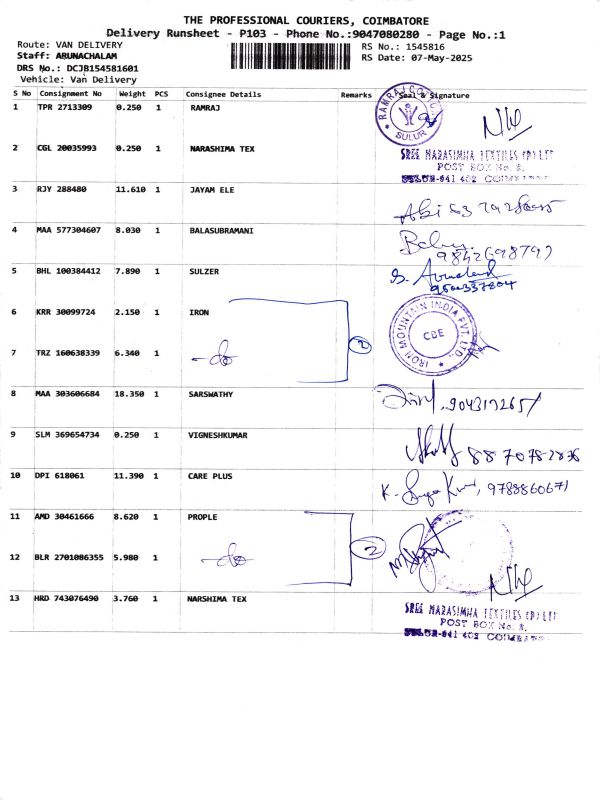 THE PROFESSIONAL COURIERS, COIMBATORE
Delivery Runsheet - P103 - Phone No.:9047080280 - Page No.:1
Route: VAN DELIVERY
RS No.: 1545816
Staff: ARUNACHALAM
RS Date: 07-May-2025
DRS No.: DCJB154581601
Vehicle: Van Delivery
S No Consignment No Weight PCS Consignee Details Remarks Seal & Signature
1 TPR 2713309 0.250 1 RAMRAJ
SULUR
2 CGL 20035993 0.250 1 NARASHIMA TEX
SREE NARASIMHA TEXTILES (P) LTD
POST BOX No. 8,
SULUR-641 402 COIMBATORE
3 RJY 288480 11.610 1 JAYAM ELE
4 MAA 577304607 8.030 1 BALASUBRAMANI
5 BHL 100384412 7.890 1 SULZER
6 KRR 30099724 2.150 1 IRON
IRON MOUNTAIN INDIA PVT. LTD.,
CBE
7 TRZ 160638339 6.340 1 -do- 2
8 MAA 303606684 18.350 1 SARSWATHY
9 SLM 369654734 0.250 1 VIGNESHKUMAR
8870782836
10 DPI 618061 11.390 1 CARE PLUS
9788860671
11 AMD 30461666 8.620 1 PROPLE
12 BLR 2701086355 5.980 1 -do- 2
13 HRD 743076490 3.760 1 NARSHIMA TEX
SREE NARASIMHA TEXTILES (P) LTD
POST BOX No. 8,
SULUR-641 402 COIMBATORE